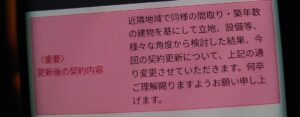 近隣地域で同様の間取り・築年数
の建物を基にして立地、設備等、
様々な角度から検討した結果、今
（重要）
回の契約更新について、上記の通
更新後の契約内容
り変更させていただきます。何卒
ご理解賜りますようお願い申し上
げます。